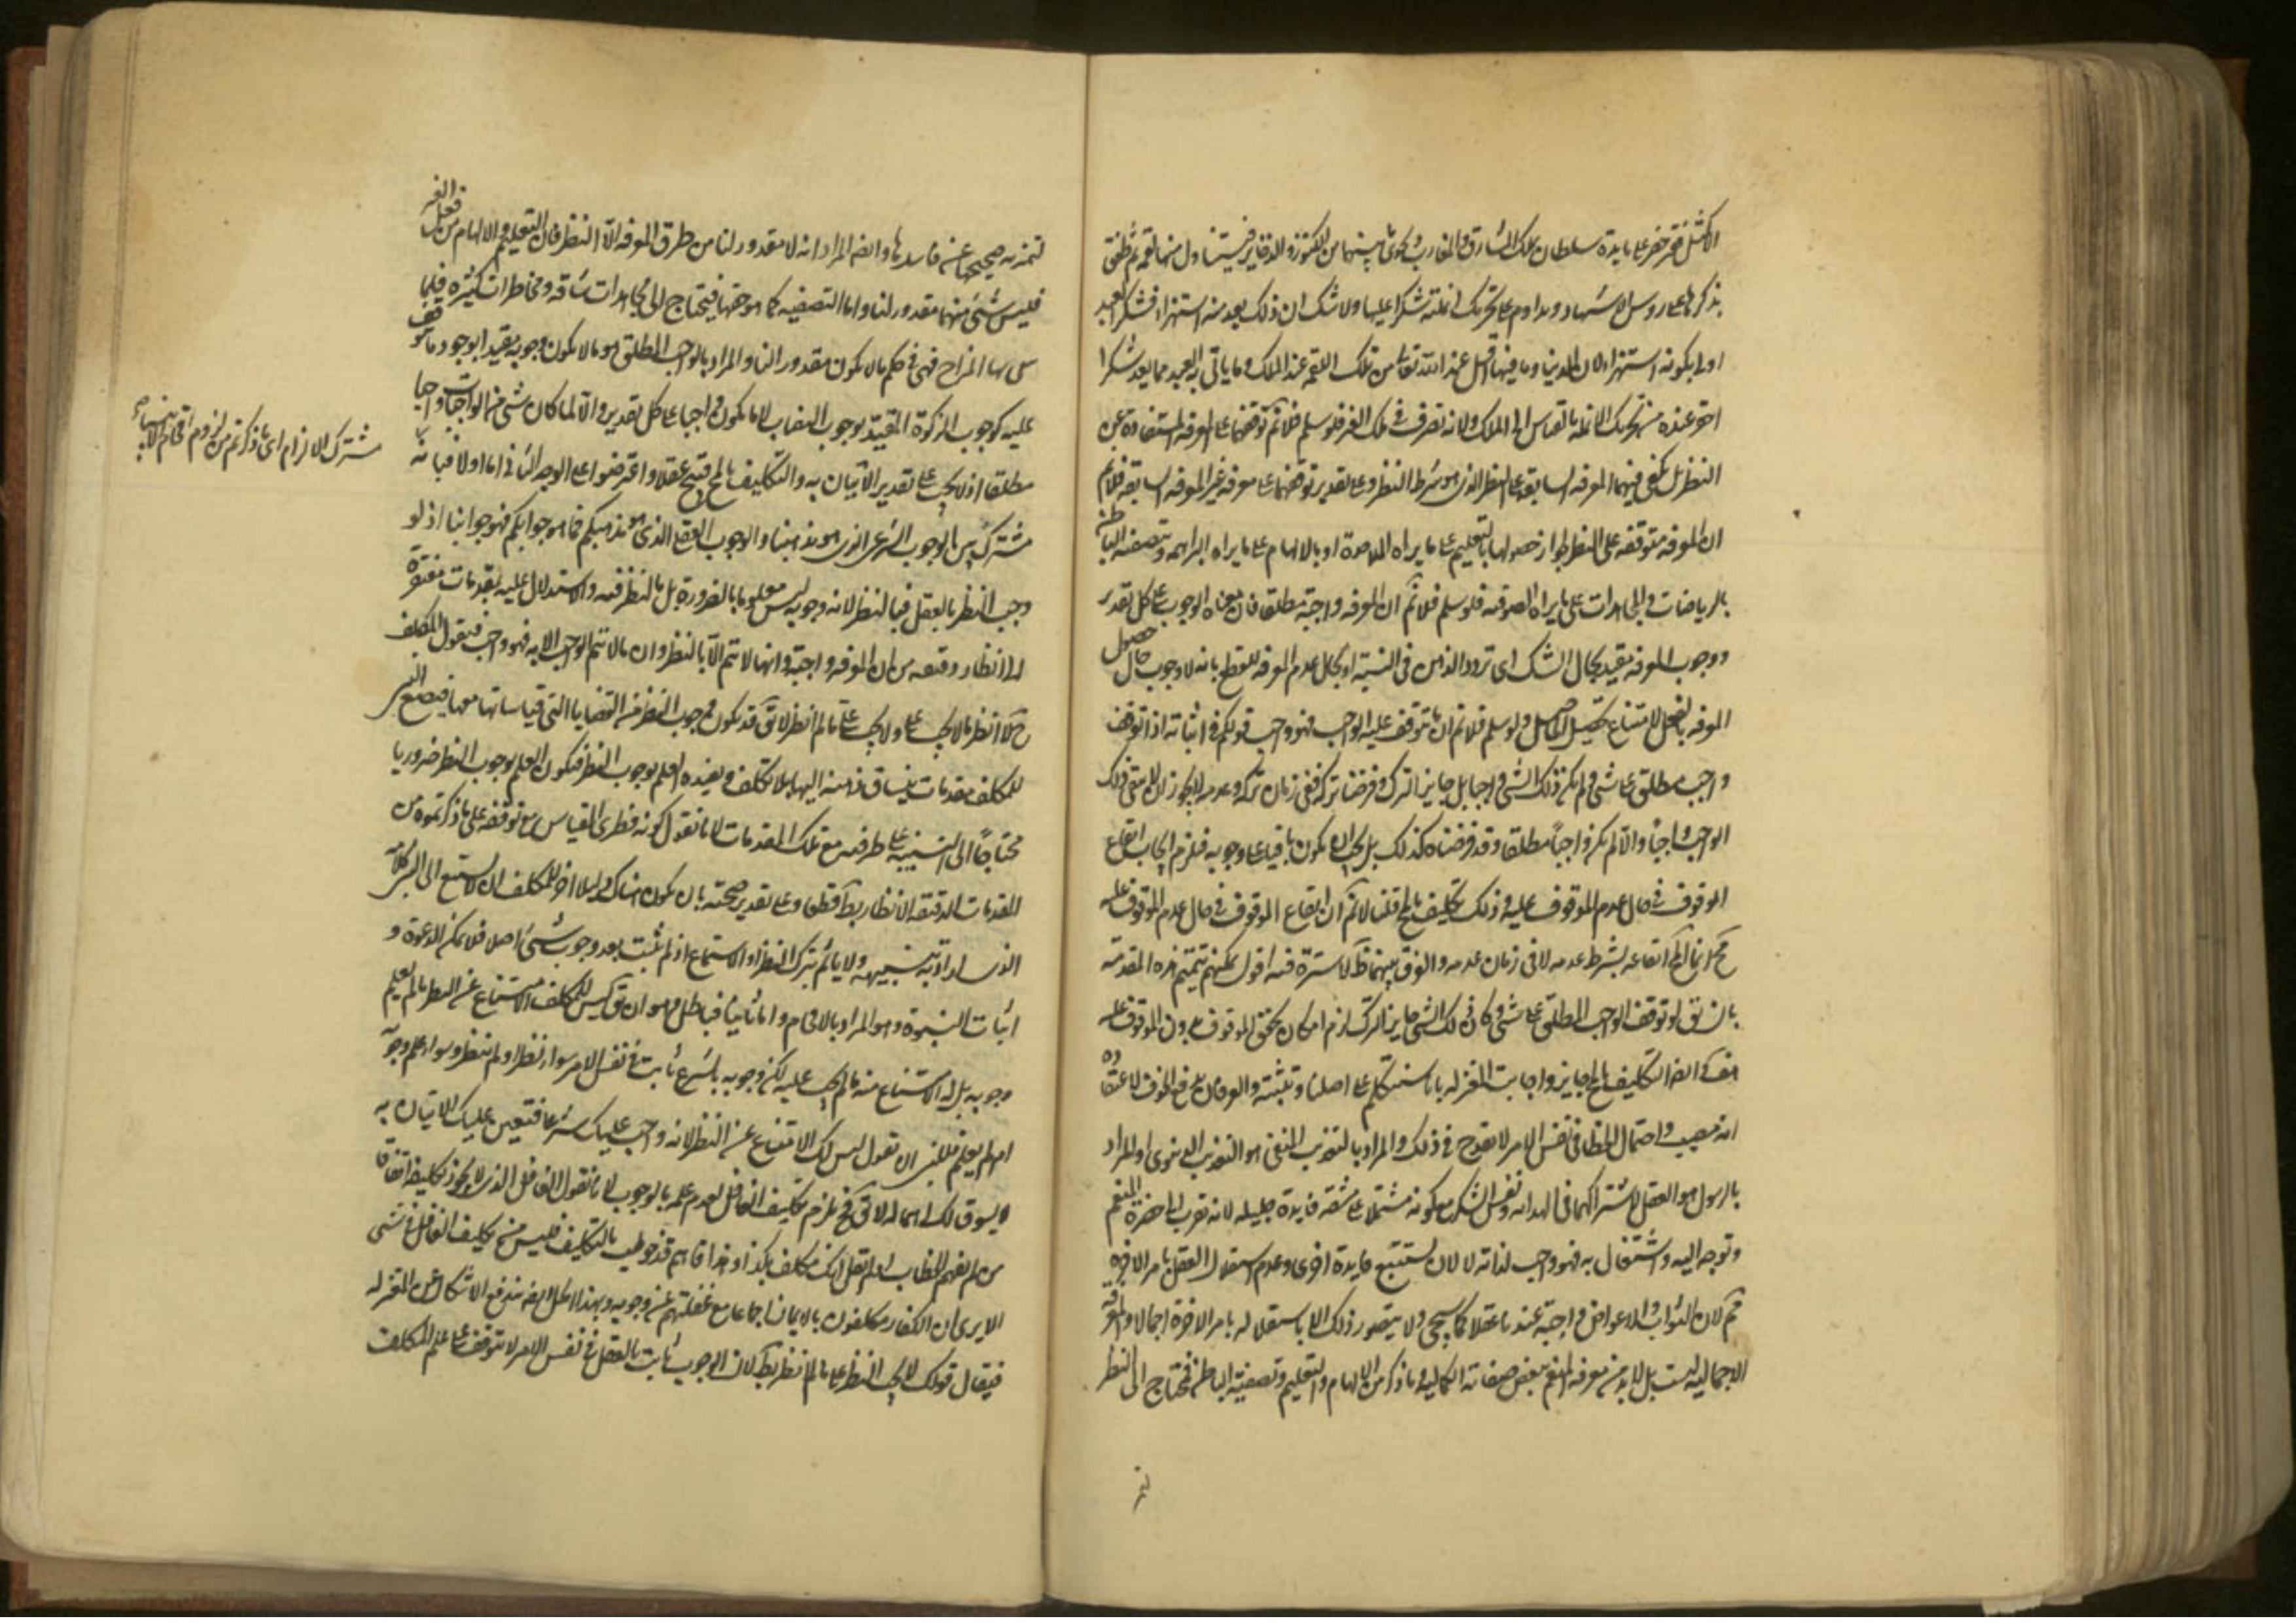 الا كمثل فقير حضر على مايدة سلطان يملك المشارق والمغارب ويحوى ما بينهما من الكنوز والدفاير فيتناول منها لقمة ثم طفق
يذكرها على روس الاشهاد ويداوم على تحريك انملته شكرا عليها ولا شك ان ذلك يعد منه استهزاء فشكر العبد
اولى بكونه استهزاء لان الدنيا وما فيها اقل عند الله تعالى من تلك اللقمة عند الملك وما ياتى به العبد مما يعد شكرا
احقر عنده من تحريك الانملة بالقياس الى الملك ولانه تصرف فى ملك الغير فلو سلم فلا نم توقفهما على المعرفة المستفادة من
النظر بل يكفى فيهما المعرفة السابقة على النظر الذى هو شرط النظر وعلى تقدير توقفهما على معرفة غير المعرفة السابقة فلا نم
ان المعرفة متوقفة على النظر لجواز حصولها بالتعليم على ما يراه الملاحدة او بالالهام على ما يراه البراهمة وتصفية الباطن
بالرياضات والمجاهدات على ما يراه الصوفية فلو سلم فلا نم ان المعرفة واجبة مطلقا فان معناه الوجوب على كل تقدير
ووجوب المعرفة مقيد بحال الشك اى تردد الذهن فى النسبة او بحال عدم المعرفة للقطع بانه لا وجوب حال حصول
المعرفة بالفعل لامتناع تحصيل الحاصل ولو سلم فلا نم ان ما يتوقف عليه الواجب فهو واجب قولكم فى اثباته اذا توقف
واجب مطلق على شى ولم يكن ذلك الشى واجبا بل جايز الترك وفرضنا تركه ففى زمان تركه وعدمه لا يجوز ان لا يبقى ذلك
الواجب واجبا والا لم يكن واجبا مطلقا وقد فرضناه كذلك بل يجب ان يكون باقيا على وجوبه فيلزم ايجاب ايقاع
الموقوف فى حال عدم الموقوف عليه وذلك تكليف بالمح قلنا لا نم ان ايقاع الموقوف فى حال عدم الموقوف عليه
مح انما المح ايقاعه بشرط عدمه لا فى زمان عدمه والفرق بينهما ظ لا سترة فيه اقول يمكنهم تتميم هذه المقدمة
بان يق لو توقف الواجب المطلق على شى وكان ذلك الشى جايز الترك لزم امكان تحقق الموقوف بدون الموقوف عليه
هف وايضا التكليف بالمح جايز واجابت المعتزلة بانا سنتكلم على اصلنا ونثبته والعرفان يدفع الخوف لاعتقاده
انه مصيب واحتمال الخطا فى نفس الامر لا يقدح فى ذلك والمراد بالتعذيب المنفى هو التعذيب الدنيوى او المراد
بالرسول هو العقل لاشتراكهما فى الهداية ونفس الشكر مع كونه مشتملا على مشقة فايدة جليلة لانه تقرب الى حضرة المنعم
وتوجه اليه واشتغال به فهو واجب لذاته لا لان يستتبع فايدة اخرى وعدم استقلال العقل بامر الاخرة
مم لان الثواب والاعواض واجبة عندنا عقلا كما سيجى ولا يتصور ذلك الا باستقلاله بامر الاخرة اجمالا والمعرفة
الاجمالية ليست بل لا بد من معرفة المنعم ببعض صفاته الكمالية وما ذكر من الالهام والتعليم وتصفية الباطن محتاج الى النظر
ليتميز به صحيحها عن فاسدها وايضا المراد انه لا مقدور لنا من طرق المعرفة الا النظر فان التعليم والالهام من فعل الغير
فليس شئ منهما مقدور لنا واما التصفية كما هو حقها فيحتاج الى مجاهدات شاقة ومخاطرات كثيرة فلما
بها المزاج فهى فى حكم ما لا يكون مقدورا لنا والمراد بالواجب المطلق هو ما لا يكون وجوبه مقيدا بوجود ما يتوقف
عليه كوجوب الزكوة المقيد بوجوب النصاب لا ما يكون واجبا على كل تقدير والا لما كان شى من الواجبات واجبا
مطلقا اذ لا يجب على تقدير الاتيان به والتكليف بالمح قبيح عقلا واعترضوا على الوجه الثانى اما اولا فبانه
مشترك بين الوجوب الشرعى الذى هو مذهبنا والوجوب العقلى الذى هو مذهبكم فما هو جوابكم فهو جوابنا اذ لو
وجب النظر بالعقل فبالنظر لانه وجوبه ليس معلوما بالضرورة بل بالنظر فيه والاستدلال عليه بمقدمات مفتقرة
الى انظار دقيقة من ان المعرفة واجبة وانها لا تتم الا بالنظر وان ما لا يتم الواجب الا به فهو واجب فيقول المكلف
ح لا انظر ما لا يجب على ولا يجب على ما لم انظر لا يق قد يكون وجوب النظر من القضايا التى قياساتها معها فيضع النبى
للمكلف مقدمات ينساق ذهنه اليها بلا تكلف ويفيده العلم بوجوب النظر فيكون العلم بوجوب النظر ضروريا
محتاجا الى التنبيه على طرفيه مع تلك المقدمات لانا نقول كونه فطرى القياس مع توقفه على ما ذكرتموه من
المقدمات الدقيقة الانظار بط قطعا وعلى تقدير صحته بان يكون هناك دليل اخر للمكلف ان لا يستمع الى النبى كلامه
الذى اراد به تنبيهه ولا ياثم بترك النظر او الاستماع اذ لم يثبت بعد وجوب شئ اصلا فلا يمكن الدعوة و
اثبات النبوة وهو المراد بالافحام واما ثانيا فبالحل وهو ان يق ليس للمكلف الامتناع عن النظر ما لم يعلم
وجوبه بل له الامتناع منه ما لم يجب عليه لكن وجوبه بالشرع ثابت فى نفس الامر سواء نظر او لم ينظر وسواء علم وجوبه
ام لم يعلم فللنبى ان يقول ليس لك الامتناع عن النظر لانه واجب عليك شرعا فتعين عليك الاتيان به
ولا يسوق لك اهماله لا يق فح يلزم تكليف الغافل لعدم علمه بالوجوب لانا نقول الغافل الذى لا يجوز تكليفه اتفاقا
من لم يفهم الخطاب او لم يقل انك مكلف بكذا وهذا فاهم قد خوطب بالتكليف فليس من تكليف الغافل فى شى
الا يرى ان الكفار مكلفون بالايمان اجماعا مع غفلتهم عن وجوبه وبهذا الحل ايضا يندفع الاشكال عن المعتزلة
فيقال قولك لا يجب النظر على ما لم انظر بط لان الوجوب ثابت بالعقل فى نفس الامر لا يتوقف على علم المكلف
مشترك الالزام اى ما ذكرتم من لزوم افحام الانبياء